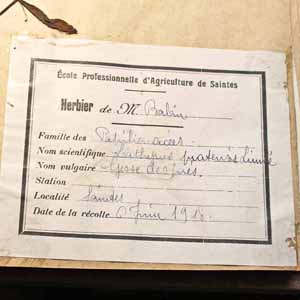 École Professionnelle d'Agriculture de Saintes
Herbier de M. Babin
Famille des Papilionacées
Nom scientifique Lathyrus pratensis Linné
Nom vulgaire Gesse des prés.
Station
Localité Saintes
Date de la récolte Juin